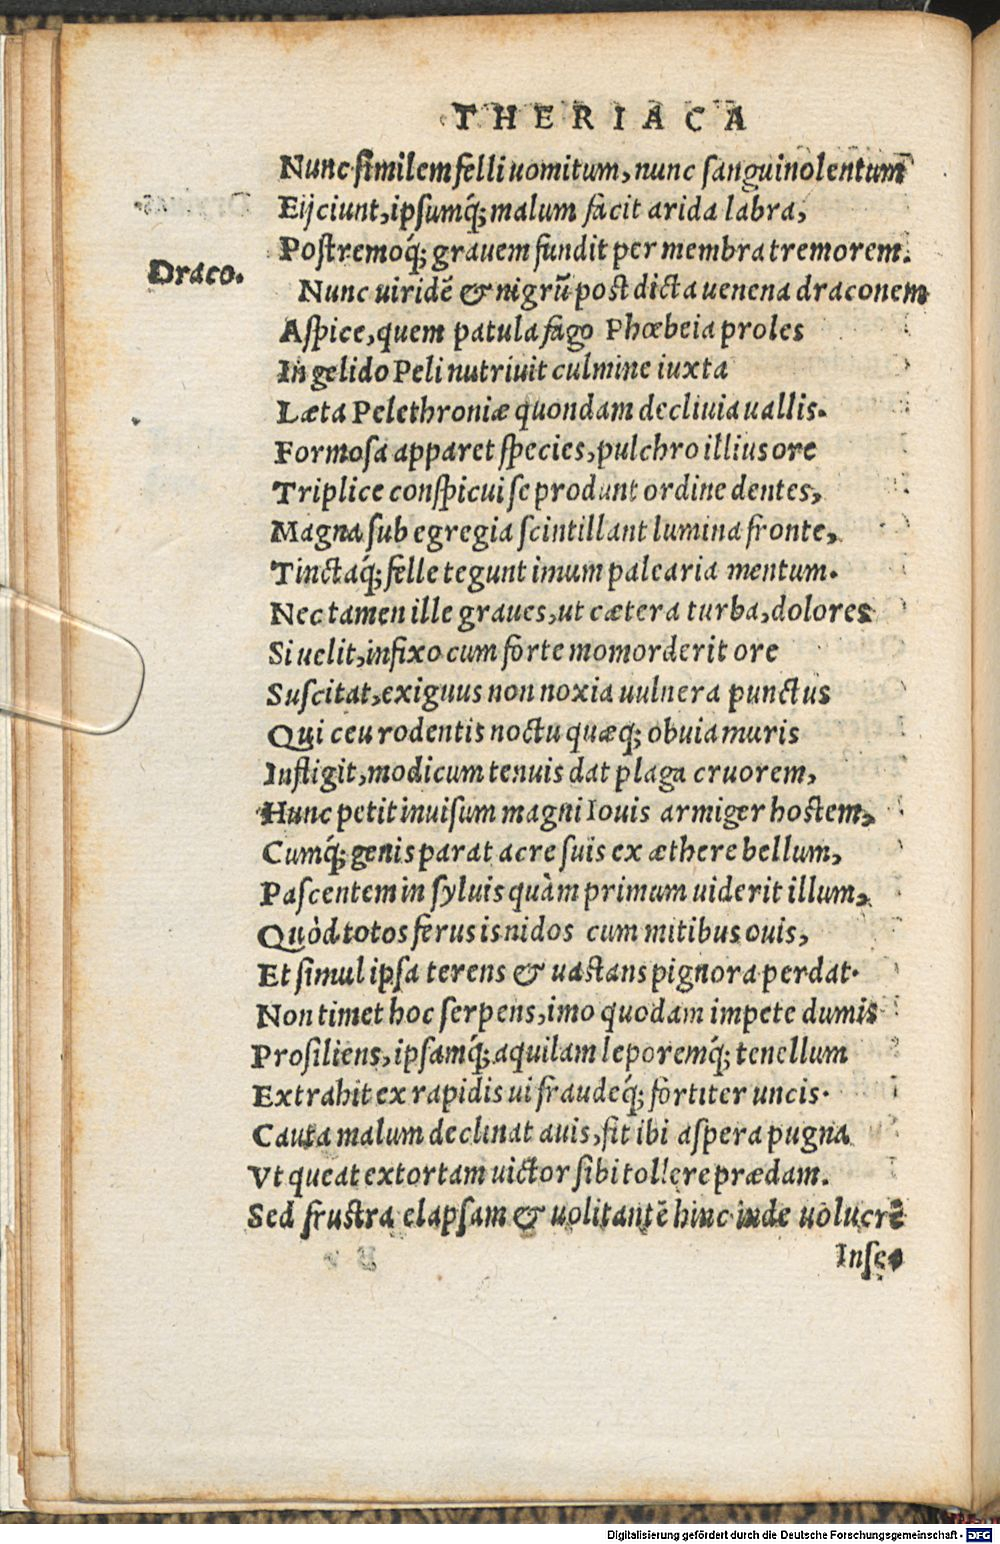 THERIACA
Nunc similem felli uomitum, nunc sanguinolentum
Eijciunt, ipsumq́; malum facit arida labra,
Postremoq́; grauem fundit per membra tremorem.
Draco.
Nunc uiridē & nigrū post dicta uenena draconem
Aspice, quem patula fago Phœbeia proles
In gelido Peli nutriuit culmine iuxta
Læta Pelethroniæ quondam decliuia uallis.
Formosa apparet species, pulchro illius ore
Triplice conspicui se produnt ordine dentes,
Magna sub egregia scintillant lumina fronte,
Tinctaq́; felle tegunt imum palearia mentum.
Nec tamen ille graues, ut cætera turba, dolores
Si uelit, infixo cum forte momorderit ore
Suscitat, exiguus non noxia uulnera punctus
Qui ceu rodentis noctu quæq; obuia muris
Infligit, modicum tenuis dat plaga cruorem,
Hunc petit inuisum magni Iouis armiger hostem,
Cumq́; genis parat acre suis ex æthere bellum,
Pascentem in syluis quàm primum uiderit illum,
Quòd totos ferus is nidos cum mitibus ouis,
Et simul ipsa terens & uastans pignora perdat.
Non timet hoc serpens, imo quodam impete dumis
Prosiliens, ipsamq́; aquilam leporemq́; tenellum
Extrahit ex rapidis ui fraudeq́; fortiter uncis.
Cauta malum declinat auis, fit ibi aspera pugna
Vt queat extortam uictor sibi tollere prædam.
Sed frustra elapsam & uolitantē hinc inde uolucrē
Inse-
Digitalisierung gefördert durch die Deutsche Forschungsgemeinschaft - DFG